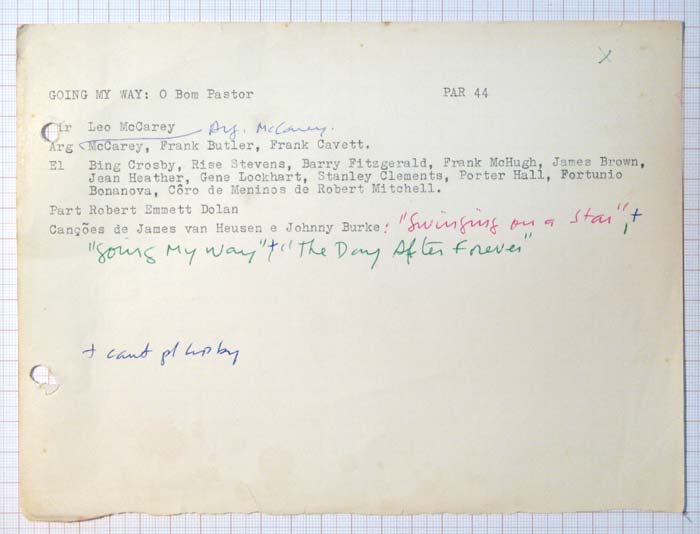 X
GOING MY WAY: O Bom Pastor PAR 44
Dir Leo McCarey Arg. McCarey.
Arg McCarey, Frank Butler, Frank Cavett.
El Bing Crosby, Rise Stevens, Barry Fitzgerald, Frank McHugh, James Brown,
Jean Heather, Gene Lockhart, Stanley Clements, Porter Hall, Fortunio
Bonanova, Côro de Meninos de Robert Mitchell.
Part Robert Emmett Dolan
Canções de James van Heusen e Johnny Burke: "Swinging on a Star", +
"Going My Way" + "The Day After Forever"
+ cant pl Crosby